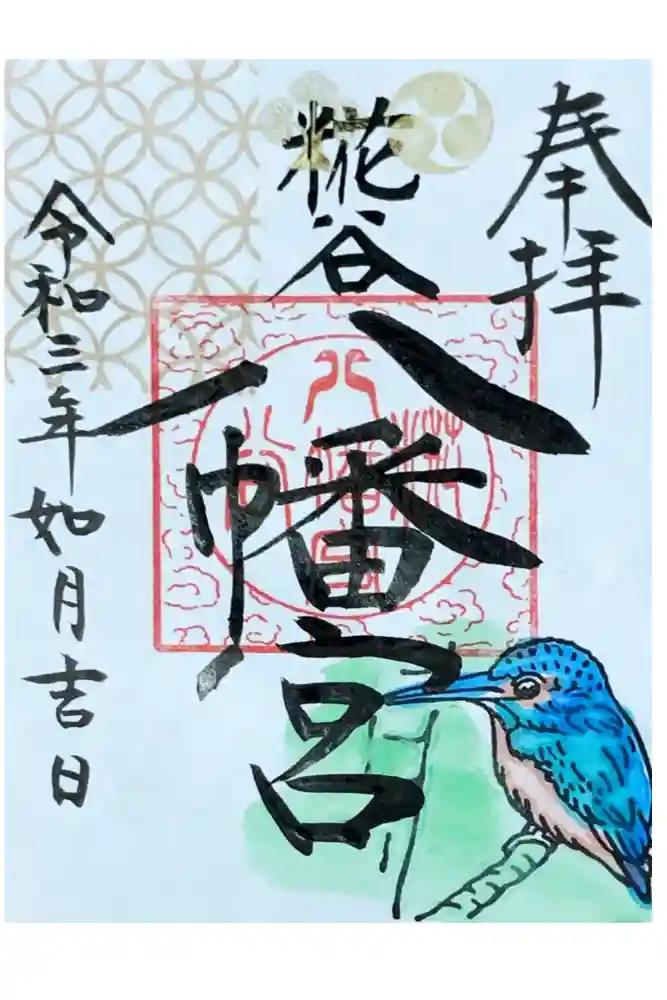 奉拝
糀谷
八幡宮
令和三年如月吉日